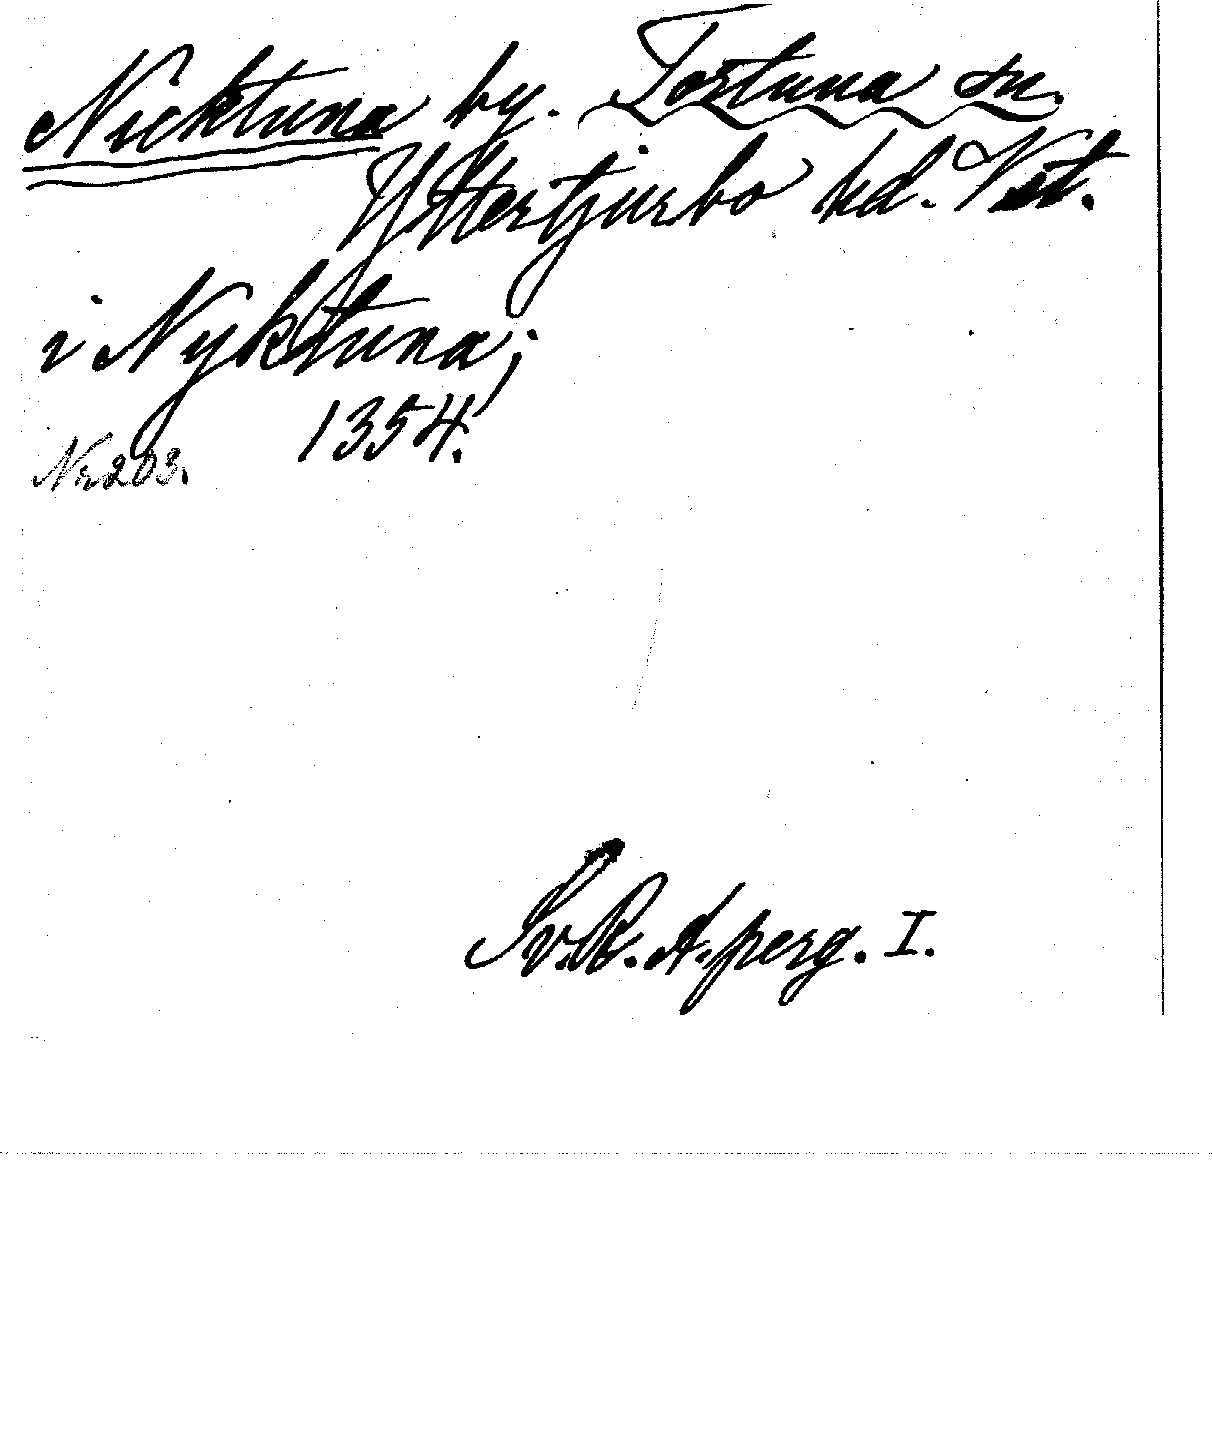 Nicktuna by. Tortuna sn.
Yttertjurbo hd. Vst.
i Nyktuna;
1354.
Nr. 203.
Sv. R. A. perg. I.